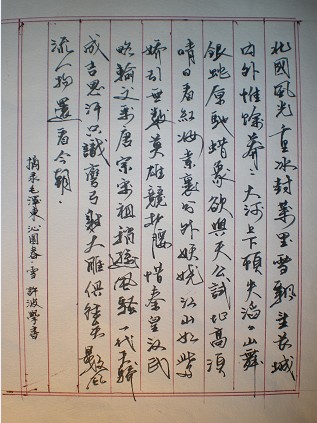 北國風光千里冰封萬里雪飄望長城
內外惟餘莽々·大河上下頓失滔々山舞
銀蛇原馳蠟象欲與天公試比高須
晴日看紅妝素裹分外妖嬈江山如此多
嬌引無數英雄競折腰惜秦皇漢武
略輸文采唐宗宋祖稍遜風騷一代天驕
成吉思汗只識彎弓射大雕俱往矣數風
流人物還看今朝·
摘录毛澤東沁園春·雪 許波學書